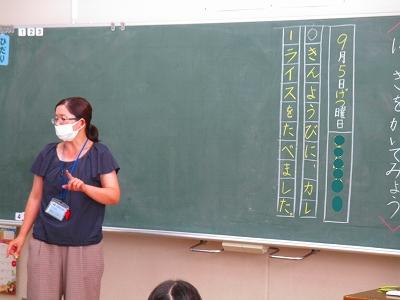 にっきをかいてみよう
9月5日げつ曜日
○きんようびに、カレ
ーライスをたべました。
1 2 3
ひだり
4